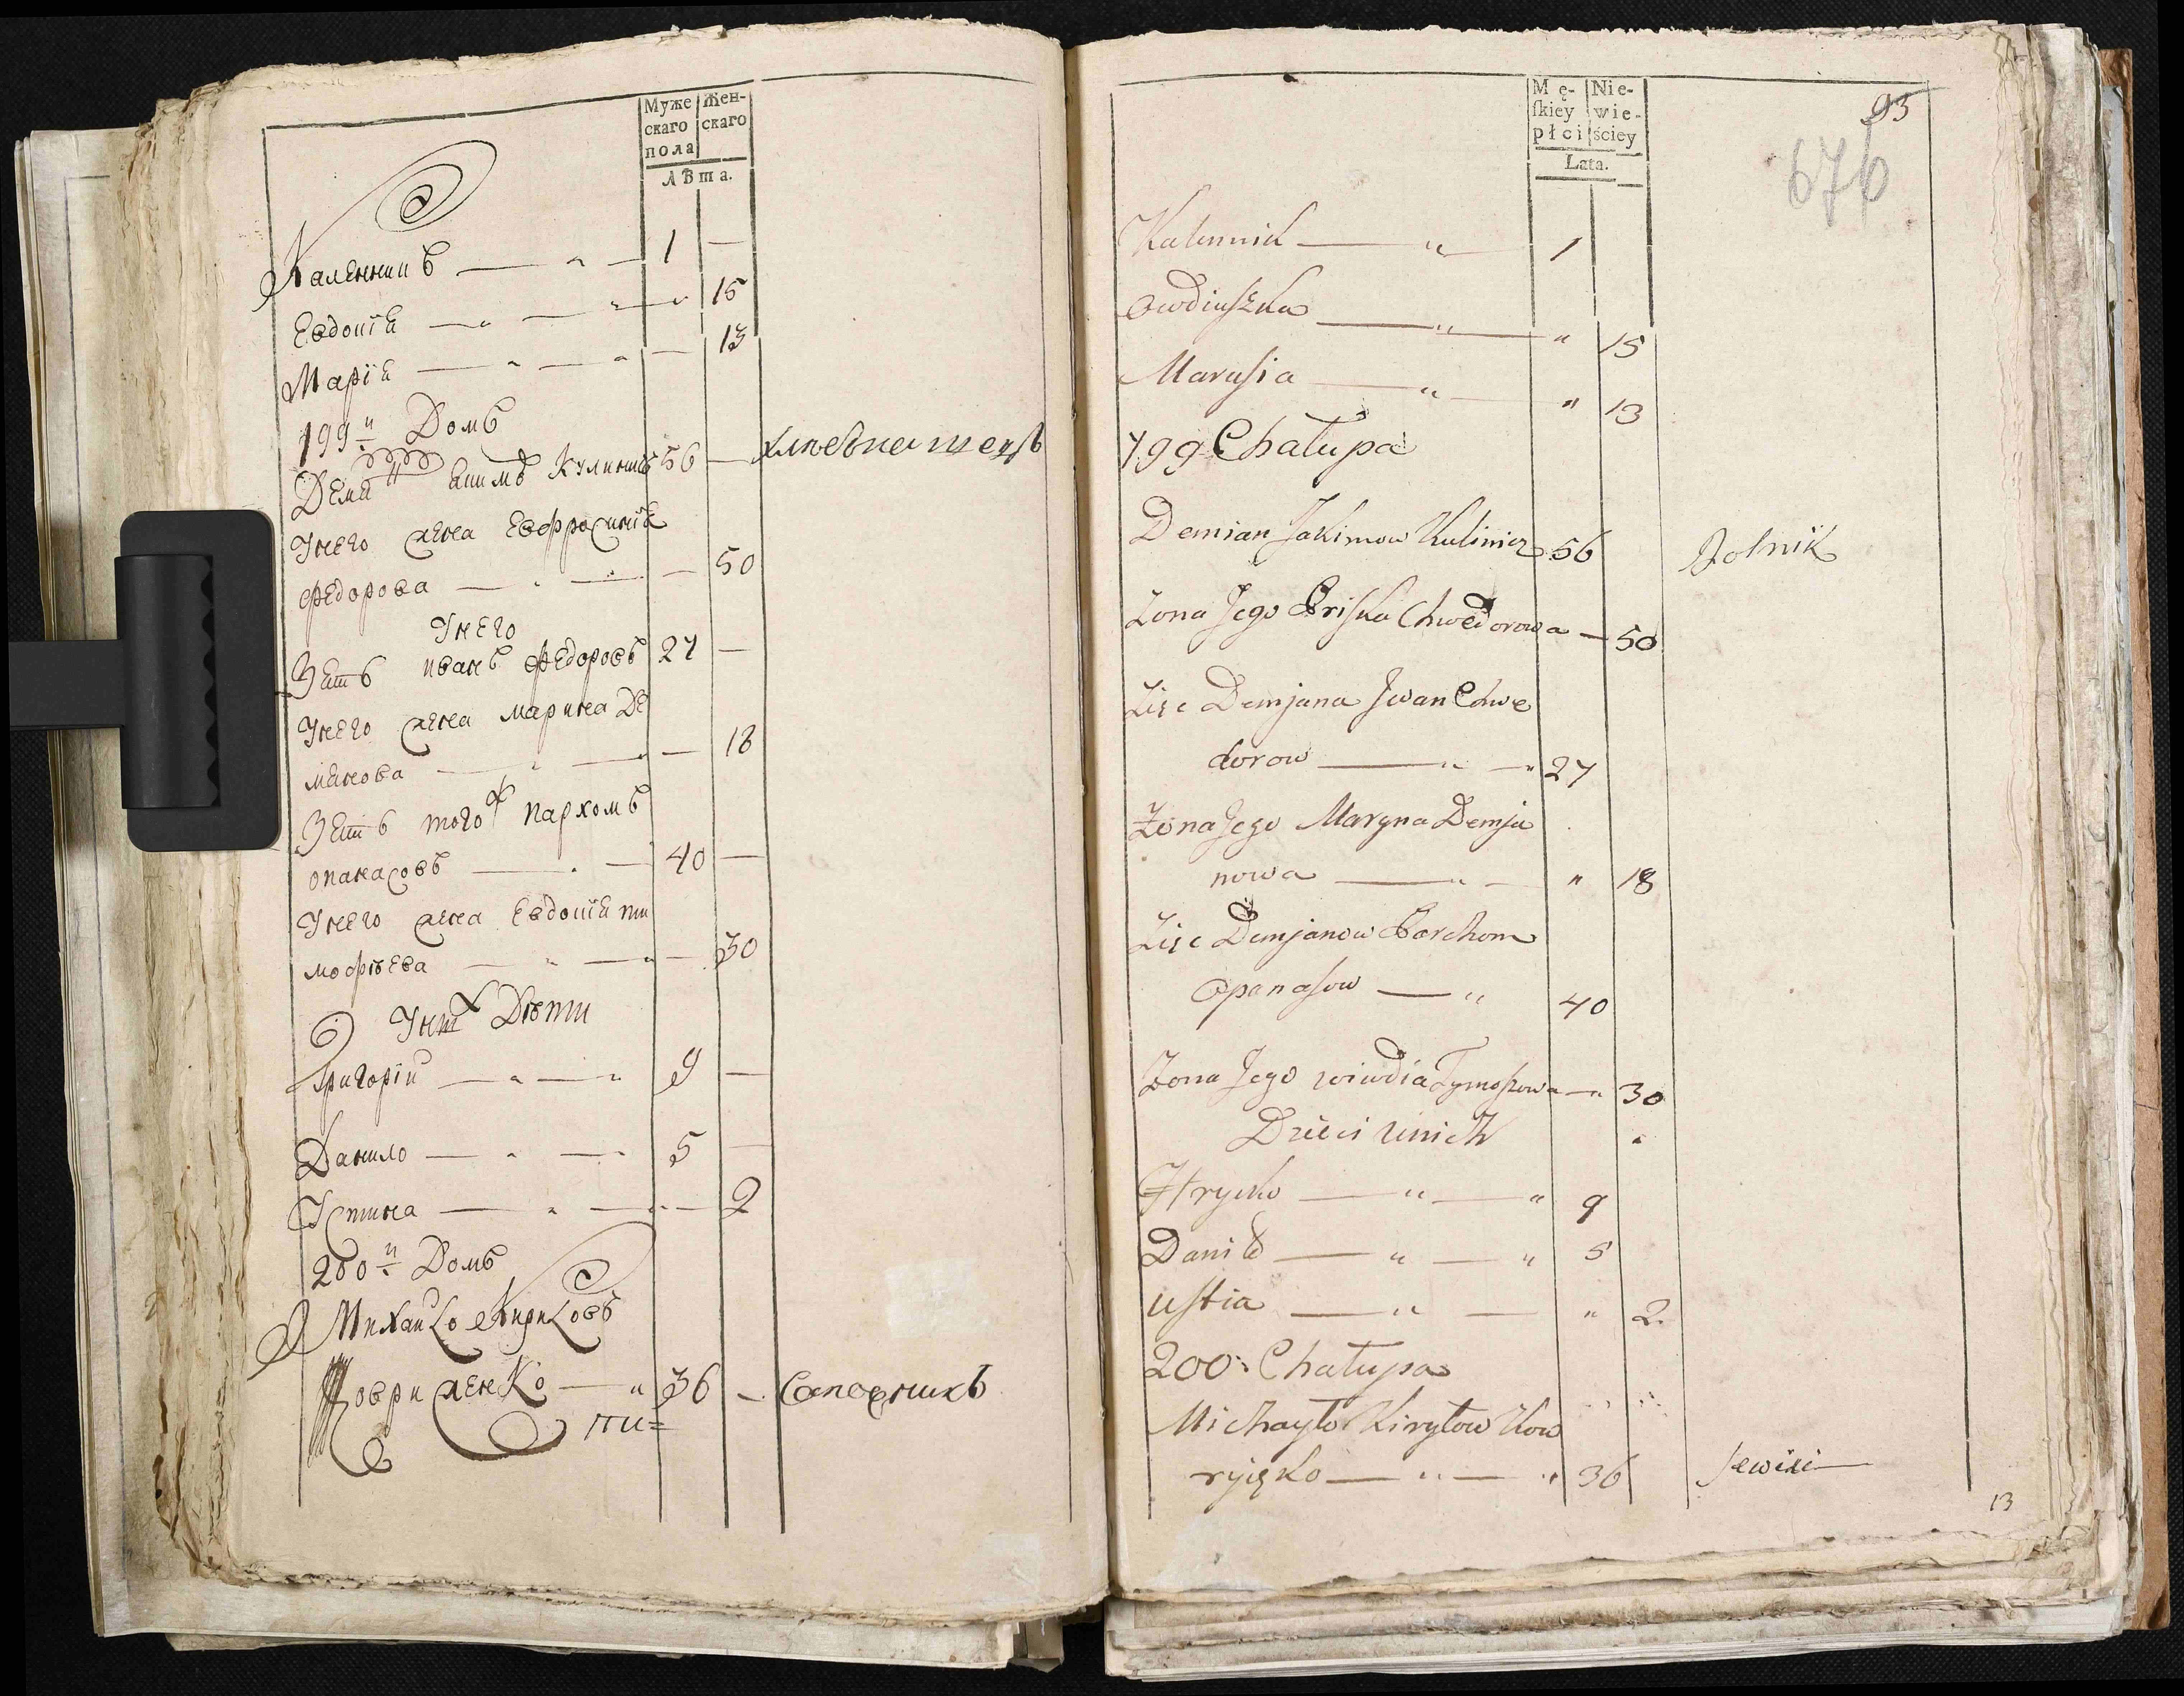 Муже
скаго
пола
Жен-
скаго
лѣта.
Каленникъ — „ — 1 —
Евдокія — „ — „ — „ 15
Марія — „ — „ — 13
199й Домъ
Демя акимъ Кулиничъ 56 — хлѣбопашецъ
Унего жена Евфросинія
Федорова — „ — „ — 50
Унего
Зять иванъ Федоровъ 27 —
Унего жена марина де
мянова — „ — „ — 18
Зять того ж пархомъ
опанасовъ — „ — 40 —
Унего жена Евдокія ти
мофѣева — „ — „ — 30
Унихъ Дѣти
Григорій — „ — „ 9 —
Данило — „ — „ 5 —
Устина — „ — „ — 2
200й Домъ
Михайло Кириловъ
Ковриженко — „ 36 — Сапожникъ
Mę-
skiey
płci
Nie-
wie-
ściey
Lata.
93
676
Kalennik — „ — 1
Owdiuszka — „ — „ 15
Marusia — „ — „ 13
199 Chałupa
Demian Jakimow Kulinicz 56 Rolnik
Zona Jego Priska Chwedorowa — 50
Zięc Demjana Jwan Chwe
dorow — „ — „ 27
Zona Jego Maryna Demja
nowa — „ — „ 18
Zięc Demjanow Parchom
Opanasow — „ 40
Zona Jego wiwdia Tymoszowa — „ 30
Dzieci unich
Hrycko — „ — „ 9
Daniło — „ — „ 5
Ustia — „ — „ 2
200 Chałupa
Michayło Kiryłow Kow
ryżeko — „ — „ 36 szewiec
13